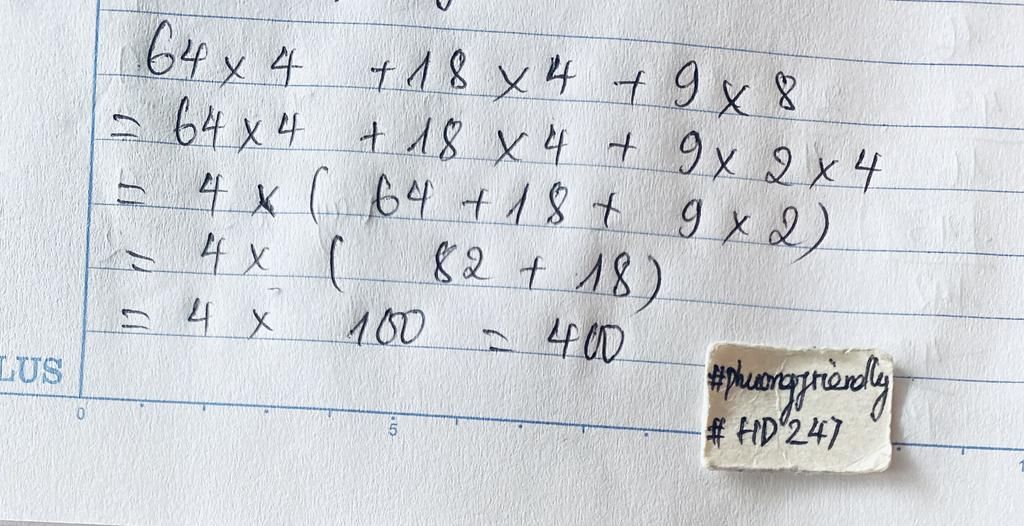 64 x 4 + 18 x 4 + 9 x 8
= 64 x 4 + 18 x 4 + 9 x 2 x 4
= 4 x ( 64 + 18 + 9 x 2)
= 4 x ( 82 + 18)
= 4 x 100 = 400
LUS
0 5 1
#phuongfriendly
# HD 247